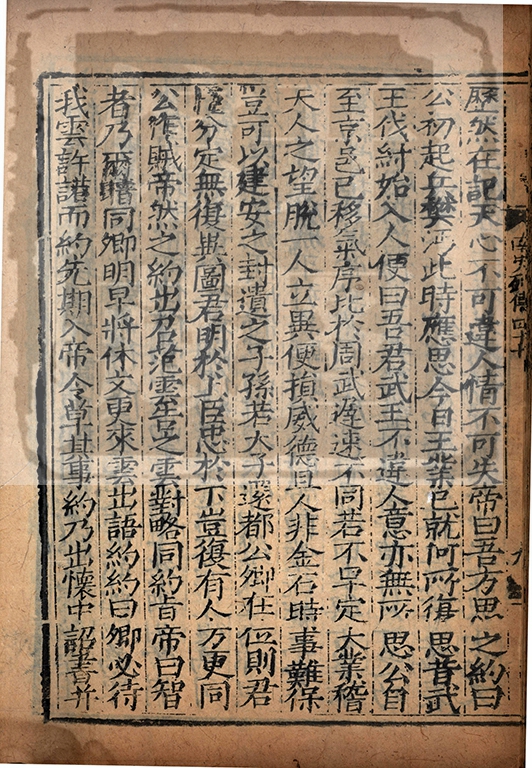 歷然在記天心不可違人情不可失帝曰吾方思之約曰
公初起兵樊沔此時應思今日王業已就何所復思昔武
王伐紂始入人便曰吾君武王不違人意亦無所思公自
至京邑已移氣序比於周武遲速不同若不早定大業稽
天人之望脫一人立異便損威德且人非金石時事難保
豈可以建安之封遺之子孫若天子還都公卿在位則君
臣分定無復異圖君明於上臣忠於下豈復有人方更同
公作賊帝然之約出召范雲告之雲對略同約旨帝曰智
者乃爾暗同卿明早將休文更來雲出語約約曰卿必待
我雲許諾而約先期入帝令草其事約乃出懷中詔書并